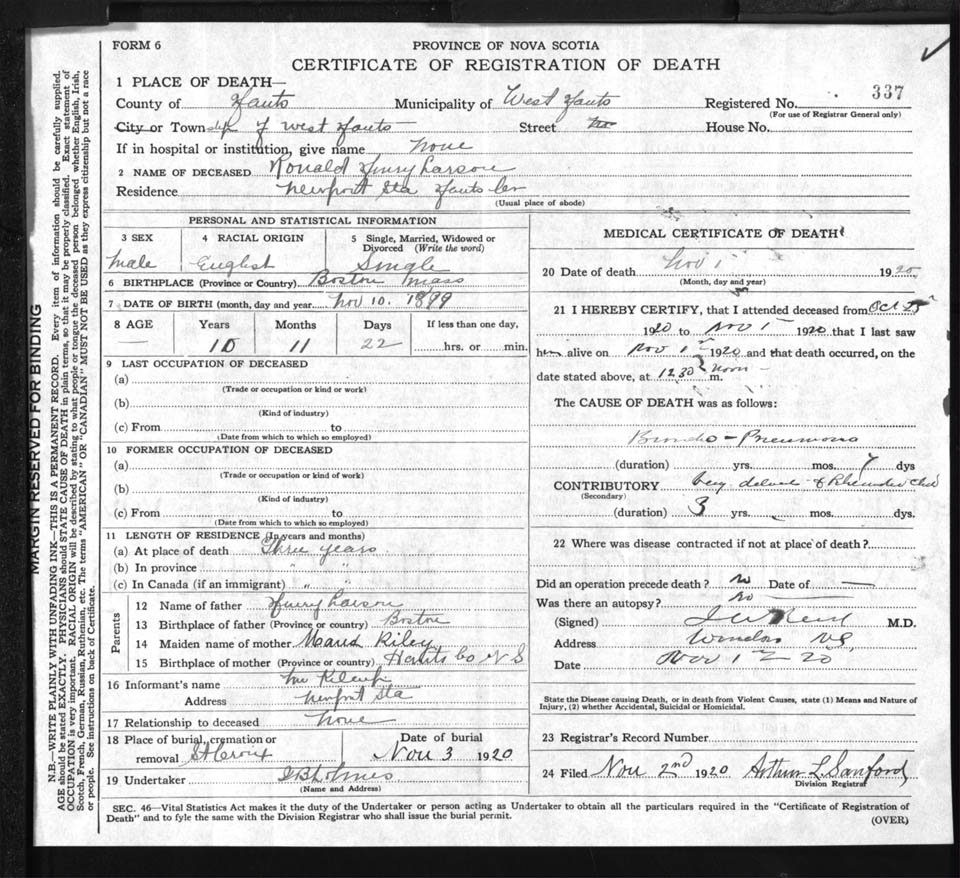 FORM 6
PROVINCE OF NOVA SCOTIA
CERTIFICATE OF REGISTRATION OF DEATH
1 PLACE OF DEATH—
County of Hants Municipality of West Hants Registered No. 337
(For use of Registrar General only)
City or Township of West Hants Street House No.
If in hospital or institution, give name None
2 NAME OF DECEASED Ronald Henry Larson
Residence Newport Sta Hants Co
(Usual place of abode)
PERSONAL AND STATISTICAL INFORMATION
3 SEX 4 RACIAL ORIGIN 5 Single, Married, Widowed or Divorced (Write the word)
Male English Single
6 BIRTHPLACE (Province or Country) Boston Mass
7 DATE OF BIRTH (month, day and year) Nov 10. 1899
8 AGE Years Months Days If less than one day,
— 10 11 22 hrs. or min.
9 LAST OCCUPATION OF DECEASED
(a)
(Trade or occupation or kind or work)
(b)
(Kind of industry)
(c) From to
(Date from which to which so employed)
10 FORMER OCCUPATION OF DECEASED
(a)
(Trade or occupation or kind of work)
(b)
(Kind of industry)
(c) From to
(Date from which to which so employed)
11 LENGTH OF RESIDENCE (In years and months)
(a) At place of death Three years
(b) In province " "
(c) In Canada (if an immigrant) " "
Parents
12 Name of father Henry Larson
13 Birthplace of father (Province or country) Boston
14 Maiden name of mother Maud Riley
15 Birthplace of mother (Province or country) Hants Co N S
16 Informant's name
Address Newport Sta
17 Relationship to deceased None
18 Place of burial, cremation or removal St Croix Date of burial Nov 3 1920
19 Undertaker
(Name and Address)
MEDICAL CERTIFICATE OF DEATH
20 Date of death Nov 1 1920
(Month, day and year)
21 I HEREBY CERTIFY, that I attended deceased from Oct 25
1920 to Nov 1 1920 that I last saw
him alive on Nov 1 1920 and that death occurred, on the
date stated above, at 12.30 noon m.
The CAUSE OF DEATH was as follows:
Broncho-Pneumonia
(duration) yrs. mos. 7 dys
CONTRIBUTORY
(Secondary)
(duration) 3 yrs. mos. dys.
22 Where was disease contracted if not at place of death?
Did an operation precede death? No Date of —
Was there an autopsy? No
(Signed) M.D.
Address Windsor NS
Date Nov 1 20
State the Disease causing Death, or in death from Violent Causes, state (1) Means and Nature of
Injury, (2) whether Accidental, Suicidal or Homicidal.
23 Registrar's Record Number
24 Filed Nov 2nd 1920 Arthur L Sanford
Division Registrar
SEC. 46—Vital Statistics Act makes it the duty of the Undertaker or person acting as Undertaker to obtain all the particulars required in the "Certificate of Registration of
Death" and to fyle the same with the Division Registrar who shall issue the burial permit.
(OVER)
MARGIN RESERVED FOR BINDING
N.B.—WRITE PLAINLY WITH UNFADING INK—THIS IS A PERMANENT RECORD. Every item of information should be carefully supplied.
AGE should be stated EXACTLY. PHYSICIANS should STATE CAUSE OF DEATH in plain terms, so that it may be properly classified. Exact statement of
OCCUPATION is very important. RACIAL ORIGIN will be described by stating to what people or tongue the deceased person belonged whether English, Irish,
Scotch, French, German, Russian, Ruthenian, etc. The terms "AMERICAN" OR "CANADIAN" MUST NOT BE USED as they express citizenship but not a race
or people. See instructions on back of Certificate.